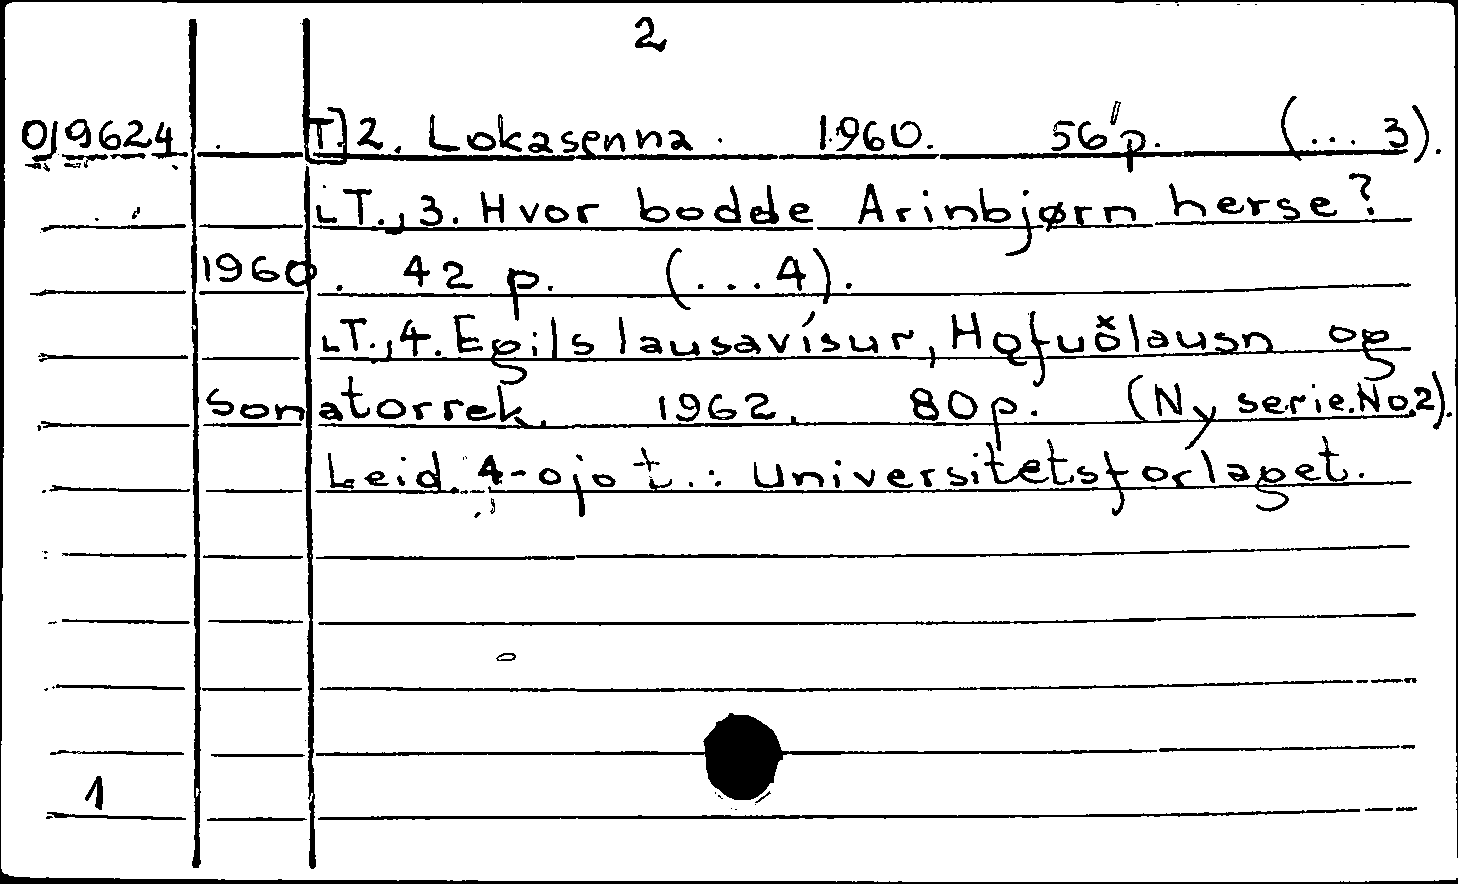 2
019624 [T.] 2. Lokasenna. 1960. 56 p. (... 3).
T., 3. Hvor bodde Arinbjørn herse?
1960. 42 p. (... 4).
T., 4. Egils lausavísur, Hǫfuðlausn og
Sonatorrek. 1962. 80 p. (Ny serie. No. 2).
Leid. 4-ojo t.: Universitetsforlaget.
1